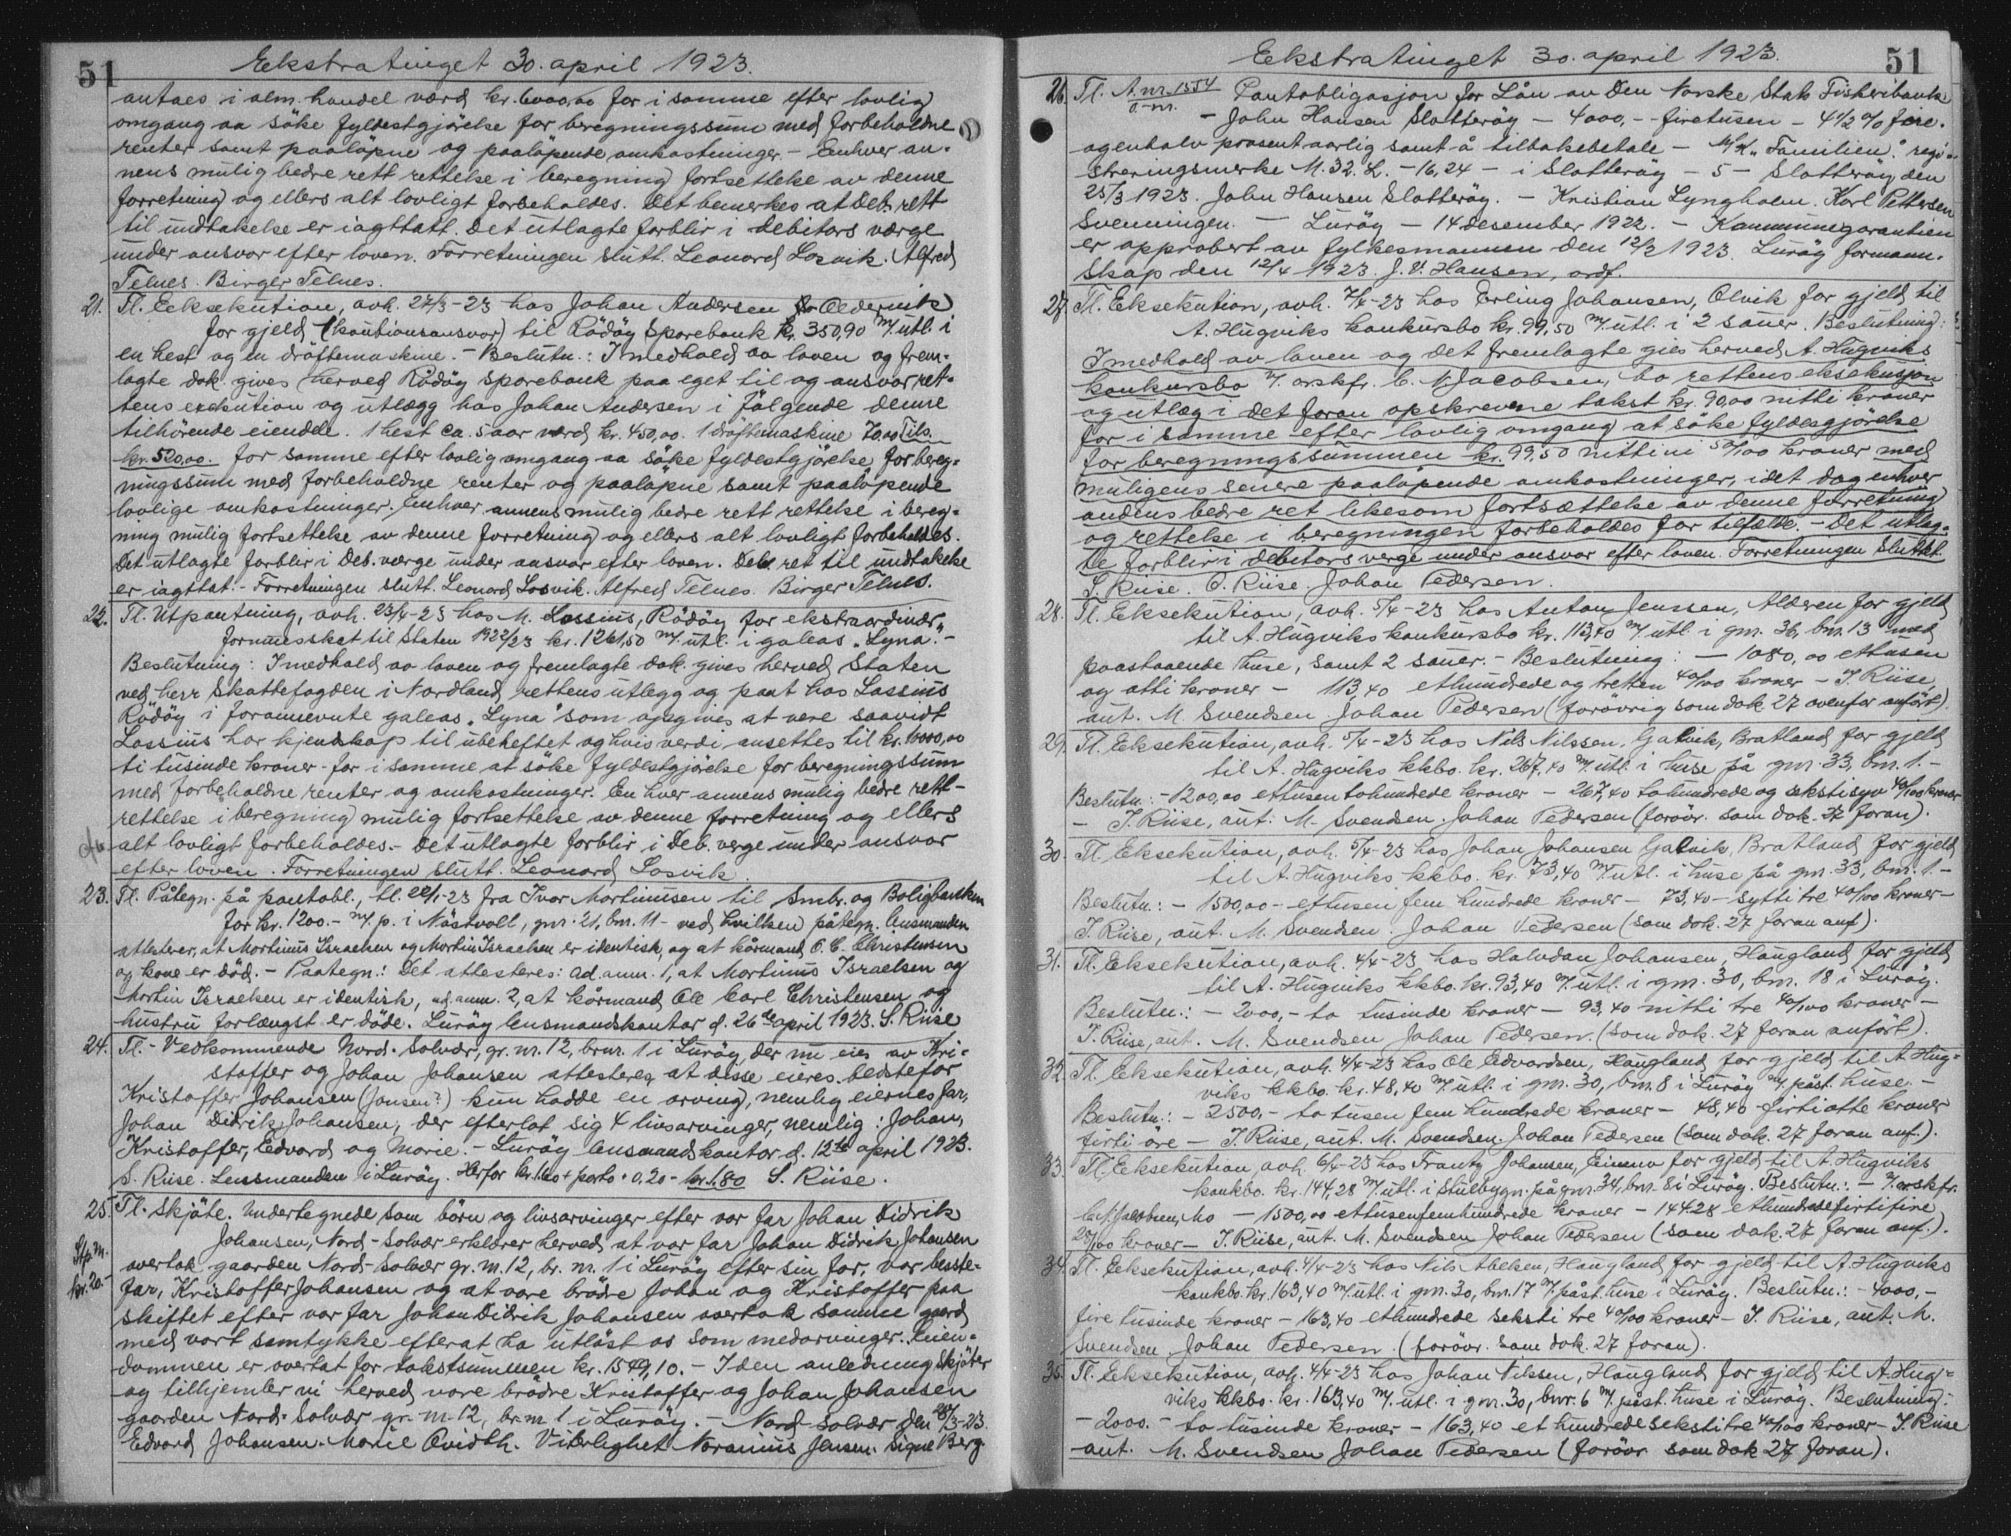 51
Ekstratinget 30. april 1923.
antaes i alm. handel værd kr. 6000,00 for i samme efter lovlig
omgang aa söke fyldestgjörelse for beregningssum med forbeholdne
renter samt paalöpne og paalöpende omkostninger. - Enhver an-
nens mulig bedre rett rettelse i beregning fortsettelse av denne
forretning og ellers alt lovligt forbeholdes. Det bemerkes at Deb. rett
til undtakelse er iagttatt. Det utlagte forblir i debitors værge
under ansvar efter loven. Forretningen slutt. Leonard Losvik. Alfred
Telnes. Birger Telnes.
21. Tl. Eeksekution, avh. 27/3-23 hos Johan Andersen Oldervik
for gjeld (kautionsansvar) til Rödöy Sparebank kr. 350,90 m/utl. i
en hest og en dröftemaskine. - Beslutn.: I medhold av loven og frem-
lagte dok. gives herved Rödöy sparebank paa eget til og ansvar ret-
tens exekution og utlægg hos Johan Andersen i fölgende denne
tilhörende eiendele. 1 hest ca. 5 aar værd kr. 450,00. 1 dröftemaskine 70,00 Tils.
kr. 520,00. for samme efter lovlig omgang aa söke fyldestgjörelse for bereg-
ningssum med forbeholdne renter og paalöpne samt paalöpende
lovlige omkostninger. Enhver annens mulig bedre rett rettelse i bereg-
ning mulig fortsettelse av denne forretning og ellers alt lovligt forbeholdes.
Det utlagte forblir i Deb. værge under ansvar efter loven. Deb. ret til undtakelse
er iagttat. - Forretningen slutt. Leonard Losvik. Alfred Telnes. Birger Telnes.
22. Tl. Utpantning, avh. 23/4-23 hos M. Lossius, Rödöy for ekstraordinær
formuesskat til Staten 1922/23 kr. 1261,50 m/utl. i galeas "Lyna". -
Beslutning: I medhold av loven og fremlagte dok. gives herved Staten
ved herr Skattefogden i Nordland rettens utlegg og pant hos Lossius
Rödöy i forannevnte galeas "Lyna" som opgives at vere saavidt
Lossius har kjendskap til ubeheftet og hvis verdi ansettes til kr. 10000,00
ti tusinde kroner - for i samme at söke fyldestgjörelse for beregningssum
med forbeholdne renter og omkostninger. En hver annens mulig bedre rett-
rettelse i beregning mulig fortsettelse av denne forretning og ellers
alt lovligt forbeholdes. - Det utlagte forblir i Deb. verge under ansvar
efter loven. Forretningen slutt. Leonard Losvik.
23. Tl. Påtegn. på pantobl., tl. 22/1-23 fra Ivar Mortinusen til Småbr. og Boligbanken
for kr. 1200.- m/p. i Nästvoll, gnr. 21, bnr. 11 - ved hvilken påtegn. lensmanden
attesterer, at Mortinus Israelsen og Mortin Israelsen er identisk, og at kårmand O. C. Christensen
og kone er död. - Paategn.: Det attesteres: ad. anm. 1, at Mortinus Israelsen og
Mortin Israelsen er identisk, ad. anm. 2, at kårmand Ole Carl Christensen og
hustru forlængst er döde. Luröy lensmandskontor d. 26de april 1923. S. Riise
24. Tl. - Vedkommende Nord-Solvær, gr. nr. 12, brnr. 1 i Luröy, der nu eies av Kri-
stoffer og Johan Johansen attesteres at disse eieres bedstefar
Kristoffer Johansen (Jonsen?) kun hadde en arving, nemlig eiernes far,
Johan Didrik Johansen, der efterlot sig 4 livsarvinger, nemlig: Johan,
Kristoffer, Edvard og Marie. - Luröy lensmandskontor d. 12te april 1923.
S. Riise. Lensmanden i Luröy. Herfor kr. 1.60 + porto 0,20 - kr. 1.80 S. Riise.
25. Tl. Skjöte. Undertegnede som börn og livsarvinger efter vor far Johan Didrik
Johansen, Nord-Solvær erklærer herved at vor far Johan Didrik Johansen
Stp. m.
kr. 20.-
overtok gaarden Nord-Solvær gr. nr. 12, br. nr. 1 i Luröy efter sin far, vor besste-
far, Kristoffer Johansen og at vore brödre Johan og Kristoffer paa
skiftet efter vor far Johan Didrik Johansen overtok samme gaard
med vort samtykke efterat ha utlöst os som medarvinger. Eien-
dommen er overtat for takstsummen kr. 1549,10. - I den anledning skjöter
og tilhjemler vi herved vore brödre Kristoffer og Johan Johansen
gaarden Nord-Solvær gr. nr. 12, br. nr. 1 i Luröy. - Nord-Solvær den 28/3-23.
Edvard Johansen. Marie Qvidth. Viterlighet Noranius Jensen. Signe Berg
Ekstratinget 30. april 1923.
51
26. Tl. A. nr. 1554 Pantobligasjon for Lån av Den Norske Stats Fiskeribank
- John Hansen Slotteröy - 4000,- firetusen - 4 1/2 % fire-
ogenhalv prosent aarlig samt å tilbakebetale - m/k "Familien" regi-
streringsmerke M. 32. L. - 16,24 - i Slotteröy - 5 - Slotteröy, den
25/3 1923. John Hansen Slotteröy. - Kristian Lyngholm. Karl Pettersen
Svenningen. - Luröy - 14 desember 1922. - Kommunegarantien
er approbert av fylkesmannen den 12/2 1923. Luröy formann-
skap den 12/4 1923. J. V. Hansen, ordf.
27. Tl. Eksekution, avh. 7/4-23 hos Erling Johansen, Olvik for gjeld til
A. Hugviks konkursbo kr. 99,50 m/utl. i 2 sauer. Beslutning:
I medhold av loven og det fremlagte gies herved A. Hugviks
konkursbo v/ orskfr. C. N. Jacobsen, bo rettens eksekusjon
og utlæg i det foran opskrevne takst kr. 90,00 nitti kroner
for i samme efter lovlig omgang at söke fyldesgjörelse
for beregningssummen kr. 99,50 nittini 50/100 kroner med
muligens senere paalöpende omkostninger, idet dog enhver
andens bedre ret likesom fortsættelse av denne forretning
og rettelse i beregningen forbeholdes for tilfælde. - Det utlag-
te forblir i debitors verge under ansvar efter loven. Forretningen sluttet.
S. Riise. O. Riise. Johan Pedersen.
28. Tl. Eksekution, avh. 5/4-23 hos Anton Jenssen, Alderen for gjeld
til A. Hugviks konkursbo kr. 113,40 m/utl. i gnr. 36, bnr. 13 med
paastaaende huse, samt 2 sauer. - Beslutning: - 1080,00 ettusen
og otti kroner - 113,40 ethundrede og tretten 40/100 kroner - S. Riise,
aut. M. Svendsen Johan Pedersen (forövrig som dok. 27 ovenfor anfört).
29. Tl. Eksekution, avh. 5/4-23 hos Nils Nilssen, Galvik, Bratland for gjeld
til A. Hugviks kkbo. kr. 267,40 m/utl. i huse på gnr. 33, bnr. 1. -
Beslutn.: - 1200,00 ettusentohundrede kroner - 267,40 tohundrede og sekstisyv 40/100 kroner
- S. Riise, aut. M. Svendsen. Johan Pedersen (forövr. som dok. 27 foran).
30. Tl. Eksekution, avh. 5/4-23 hos Johan Johansen Galvik, Bratland for gjeld
til A. Hugviks kkbo. kr. 73,40 m/utl. i huse på gnr. 33, bnr. 1. -
Beslutn.: - 1500,00 - ettusen fem hundrede kroner - 73,40 - sytti tre 40/100 kroner -
S. Riise, aut. M. Svendsen. Johan Pedersen (som dok. 27 foran anf).
31. Tl. Eksekution, avh. 4/4-23 hos Halvdan Johansen, Haugland for gjeld
til A. Hugviks kkbo. kr. 93,40 m/utl. i gnr. 30, bnr. 18 i Luröy.
Beslutn.: - 2000,- to tusinde kroner - 93,40 nitti tre 40/100 kroner -
S. Riise, aut. M. Svendsen Johan Pedersen. (som dok. 27 foran anfört).
32. Tl. Eksekution, avh. 4/4-23 hos Ole Edvardsen, Haugland for gjeld til A. Hug-
viks kkbo. kr. 48,40 m/utl. i gnr. 30, bnr. 8 i Luröy m/påst. huse. -
Beslutn.: - 2500,- to tusen fem hundrede kroner - 48,40 - firtiotte kroner
firti öre - S. Riise, aut. M. Svendsen. Johan Pedersen (som dok. 27 foran anf.).
33. Tl. Eksekution, avh. 6/4-23 hos Frantz Johansen, for gjeld til A. Hugviks
konkbo. kr. 144,28 m/utl. i Stulbygn. på gnr. 34, bnr. 8 i Luröy. Beslutn.: - v/orskfr.
C. N. Jacobsen, Mo - 1500,00 ettusenfemhundrede kroner - 144.28 ethundredefirtifire
28/100 kroner - S. Riise, aut. M. Svendsen Johan Pedersen (som dok. 27 foran anf.).
34. Tl. Eeksekution, avh. 4/4-23 hos Nils Abelsen, Haugland for gjeld til A. Hugviks
konkbo. kr. 163,40 m/utl. i gnr. 30, bnr. 17 m/påst. huse i Luröy. Beslutn.: - 4000,-
fire tusinde kroner - 163,40 ethundrede seksti tre 40/100 kroner - S. Riise, aut. M.
Svendsen. Johan Pedersen. (forövr. som dok. 27 foran).
35. Tl. Eksekution, avh. 4/4-23 hos Johan Nilssen, Haugland for gjeld til A. Hug-
viks kkbo. kr. 163,40 m/utl. i gnr. 30, bnr. 6 m/påst. huse i Luröy. Beslutning:
- 2000.- to tusinde kroner - 163,40 et hundredesekstitre 40/100 kroner - S. Riise
aut. M. Svendsen Johan Pedersen (forövr som dok 27 foran).